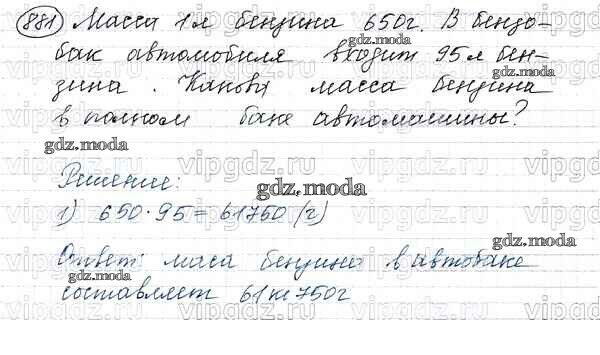 881) Масса 1 л бензина 650г. В бензо-
бак автомобиля входит 95 л бен-
зина. Какова масса бензина
в полном баке автомашины?
Решение:
1) 650·95=61750 (г)
Ответ: маса бензина в автобаке
составляет 61кг 750г
gdz.moda
vipgdz.ru